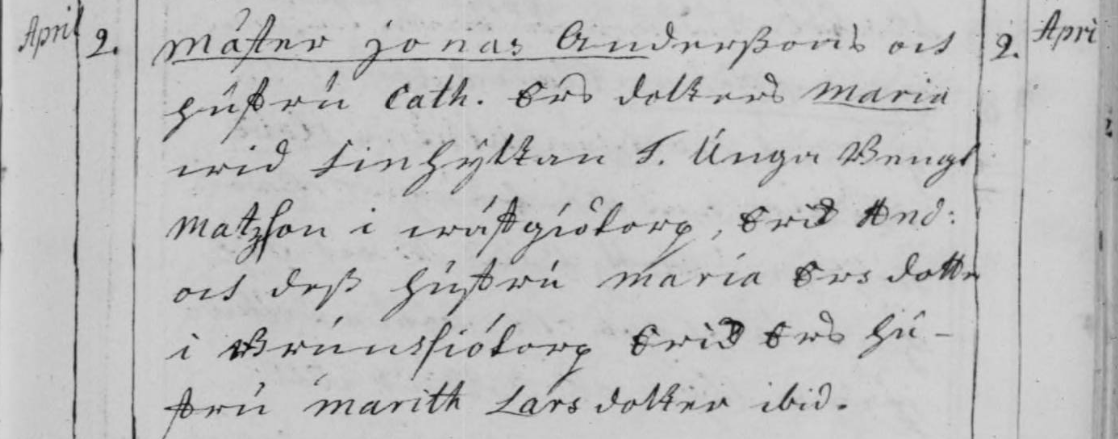 April 2. Mäster jonas Anderßons och 2. Apri
hústrú Cath. Ers dotters Maria
wid Finhÿttan F. Únga Bengt
Matzson i wästgiötorp, Erich And:
och deß hústrú maria Ers dotte
i Brúnssiötorp Erich Ers hú-
strú marith Lars dotter ibid.